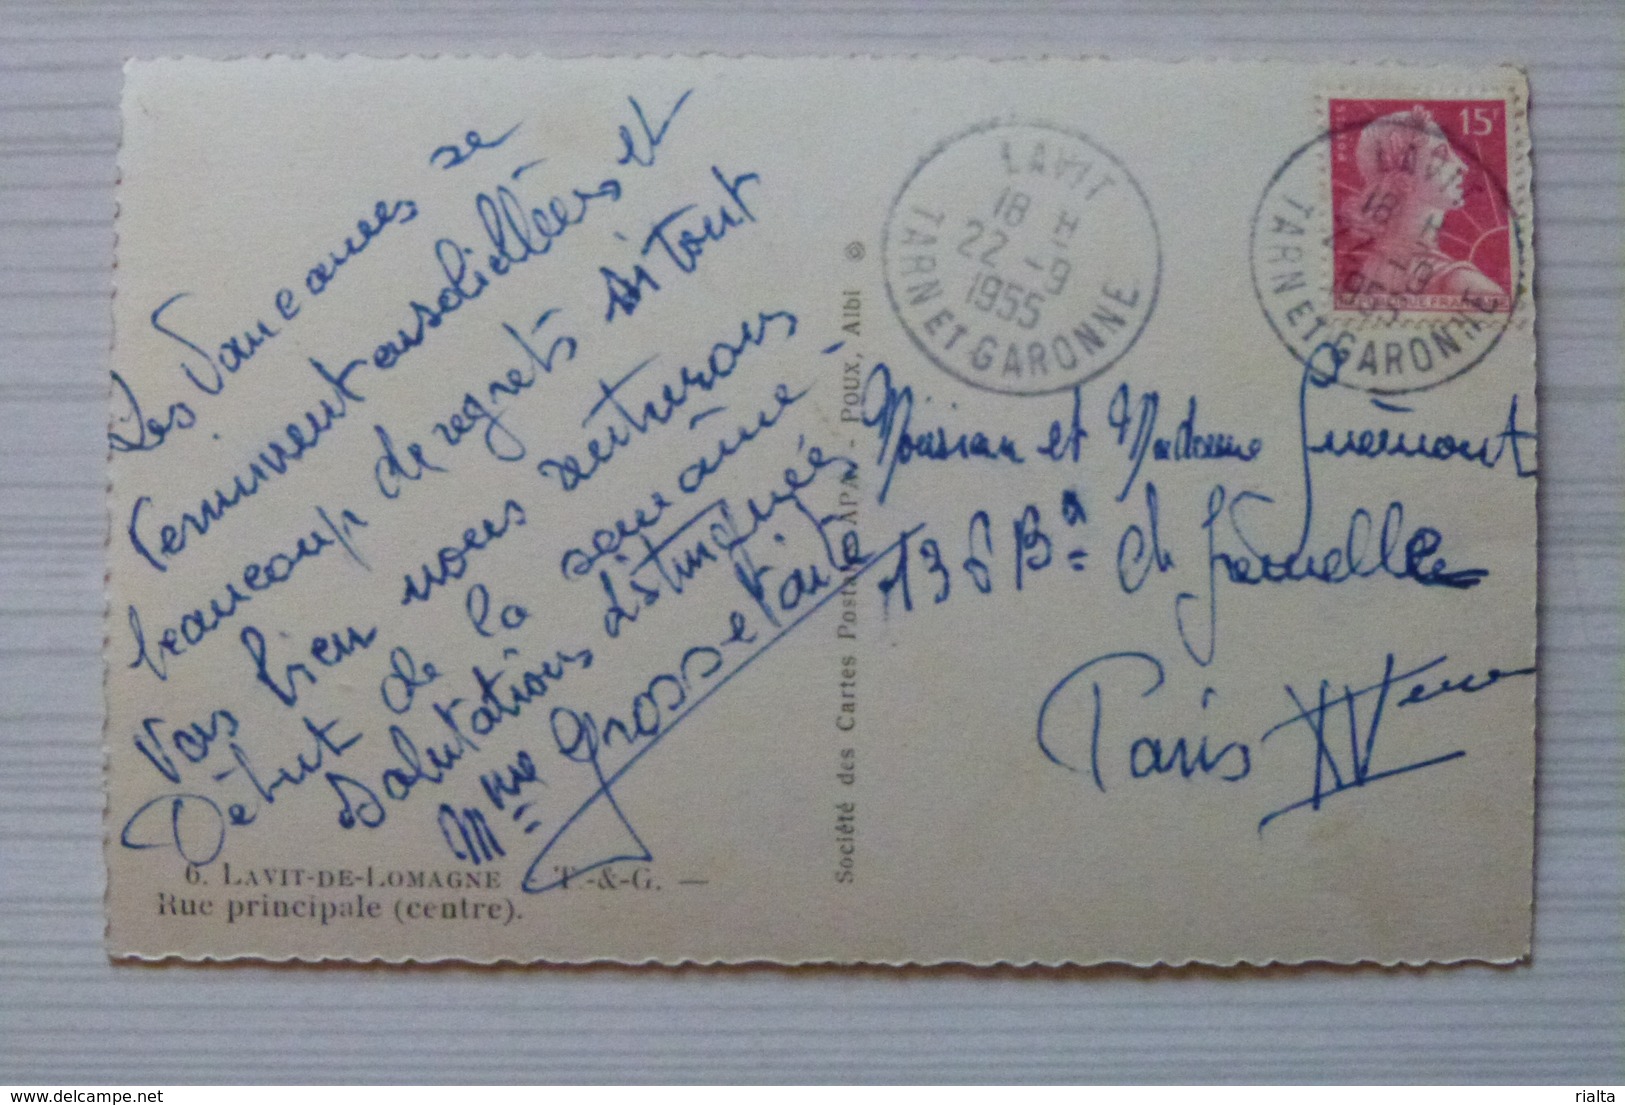 Les Vancances se
terminent ensoleillées et
beaucoup de regrets si tout
Vas bien nous rentrerons
Début de la semaine
Salutations distinguées
Mme Grossetaite
6. LAVIT-DE-LOMAGNE - T.-&-G. —
Rue principale (centre).
Société des Cartes Postales APA - POUX, Albi
LAVIT
18 H
22 - 9
1955
TARN ET GARONNE
POSTES
15F
REPUBLIQUE FRANÇAISE
LAVIT
18 H
22 - 9
1955
TARN ET GARONNE
et Madame Guémont
136 Bd de Grenelle
Paris XVeme
rialta
delcampe.net